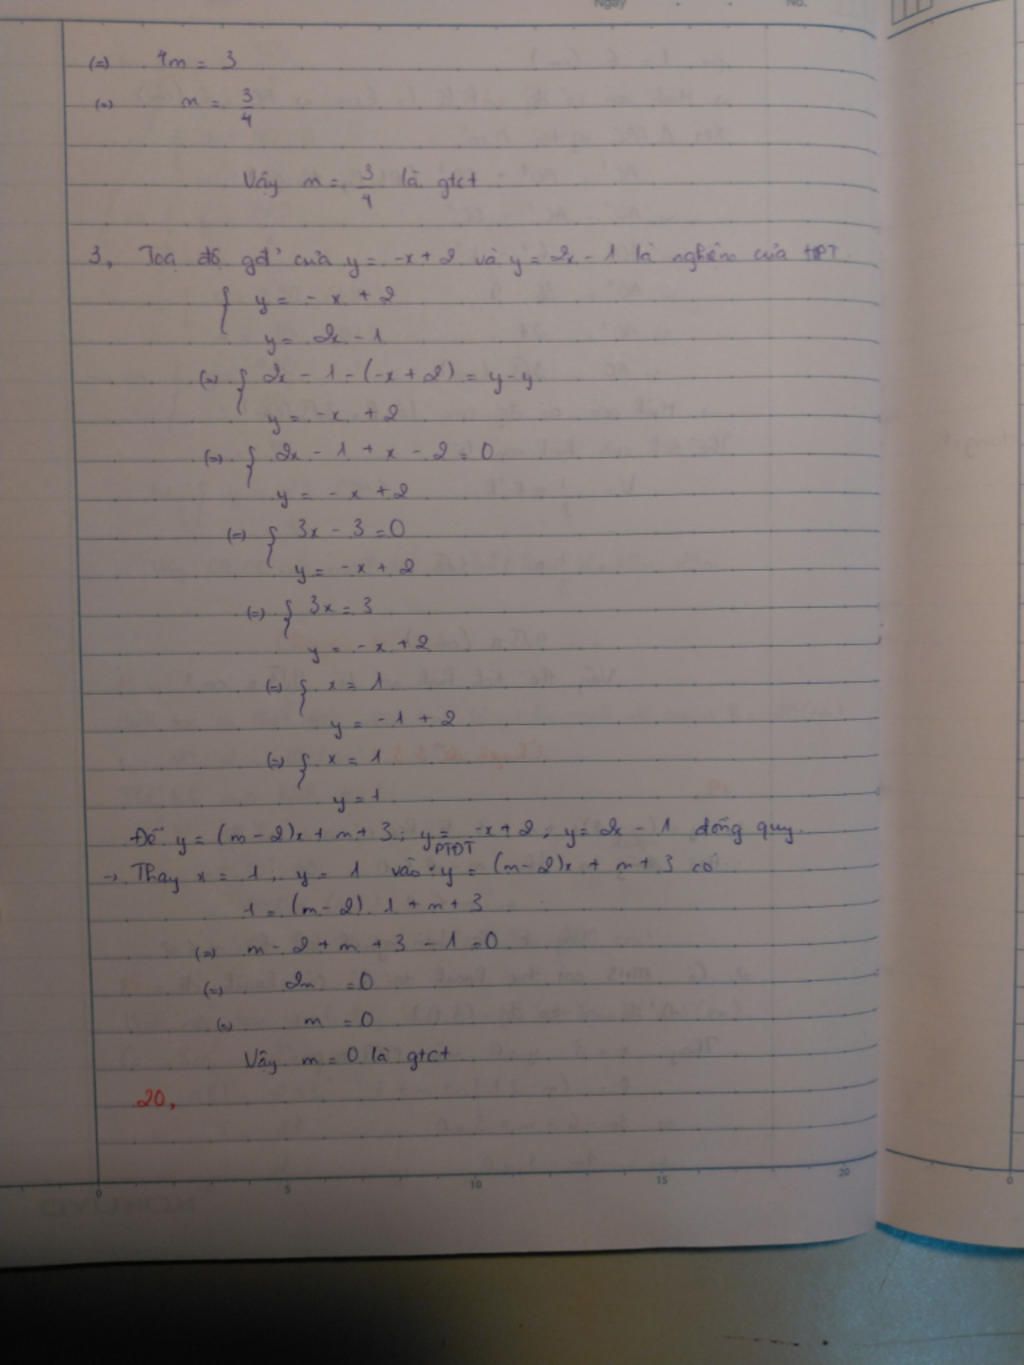 Ngày No.
(=) 4m = 3
(=) m = 3/4
Vậy m = 3/4 là gtct
3, Toạ độ gđ' của y = -x + 2 và y = 2x - 1 là nghiệm của HPT
{ y = - x + 2
y = 2x - 1
(=) { 2x - 1 - (-x + 2) = y - y
y = -x + 2
(=) { 2x - 1 + x - 2 = 0
y = - x + 2
(=) { 3x - 3 = 0
y = -x + 2
(=) { 3x = 3
y = -x + 2
(=) { x = 1
y = -1 + 2
(=) { x = 1
y = 1
Để y = (m - 2)x + m + 3 ; y = -x + 2 ; y = 2x - 1 đồng quy
PTĐT
→ Thay x = 1 , y = 1 vào y = (m - 2)x + m + 3 có
1 = (m - 2) . 1 + m + 3
(=) m - 2 + m + 3 - 1 = 0
(=) 2m = 0
(=) m = 0
Vậy m = 0 là gtct
20,
0 5 10 15 20
0